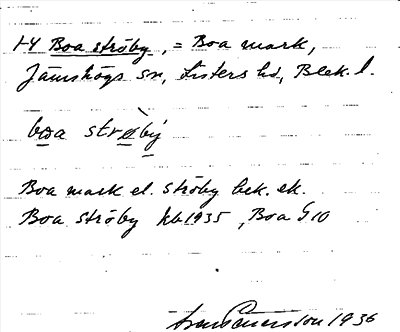 1-4 Boa ströby, = Boa mark,
Jämshögs sn, Listers hd, Blek. l.
bωa strøbý
Boa mark el. Ströby bek. ek.
Boa Ströby hb 1935, Boa G 10
1936